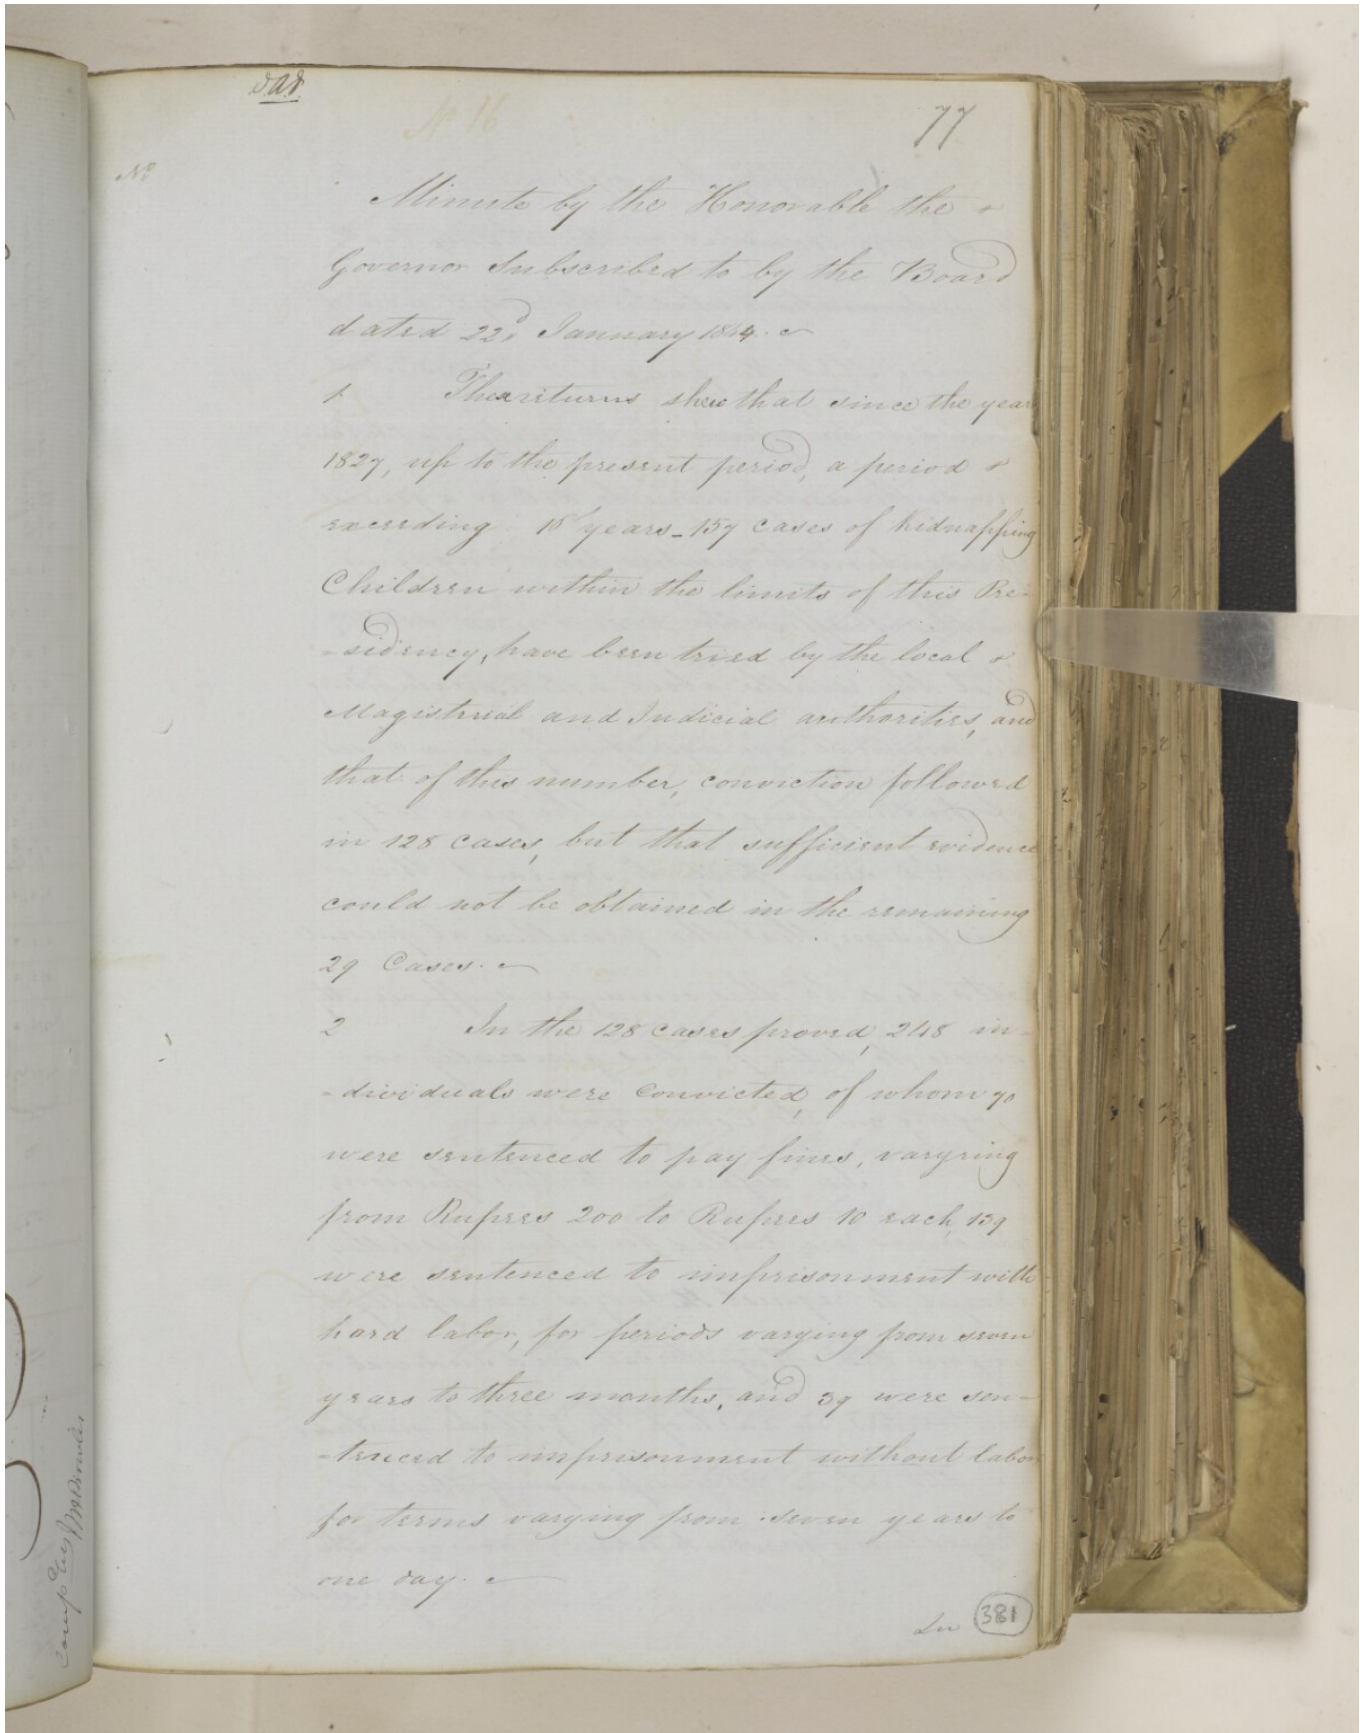 No 16
77
No
Minute by the Honorable the
Governor Subscribed to by the Board
dated 22d January 1844.
1 These returns shew that since the year
1827, up to the present period, a period
exceeding 16 years_ 157 cases of kidnapping
Children within the limits of this Pre-
-sidency, have been tried by the local
Magisterial and Judicial authorities, and
that of this number, conviction followed
in 128 cases, but that sufficient evidence
could not be obtained in the remaining
29 Cases.
2 In the 128 cases proved, 248 in-
-dividuals were Convicted, of whom 70
were sentenced to pay fines, varying
from Rupees 200 to Rupees 10 each, 139
were sentenced to imprisonment with
hard labor, for periods varying from seven
years to three months, and 39 were sen-
-tenced to imprisonment without labor
for terms varying from seven years to
one day.
In
381